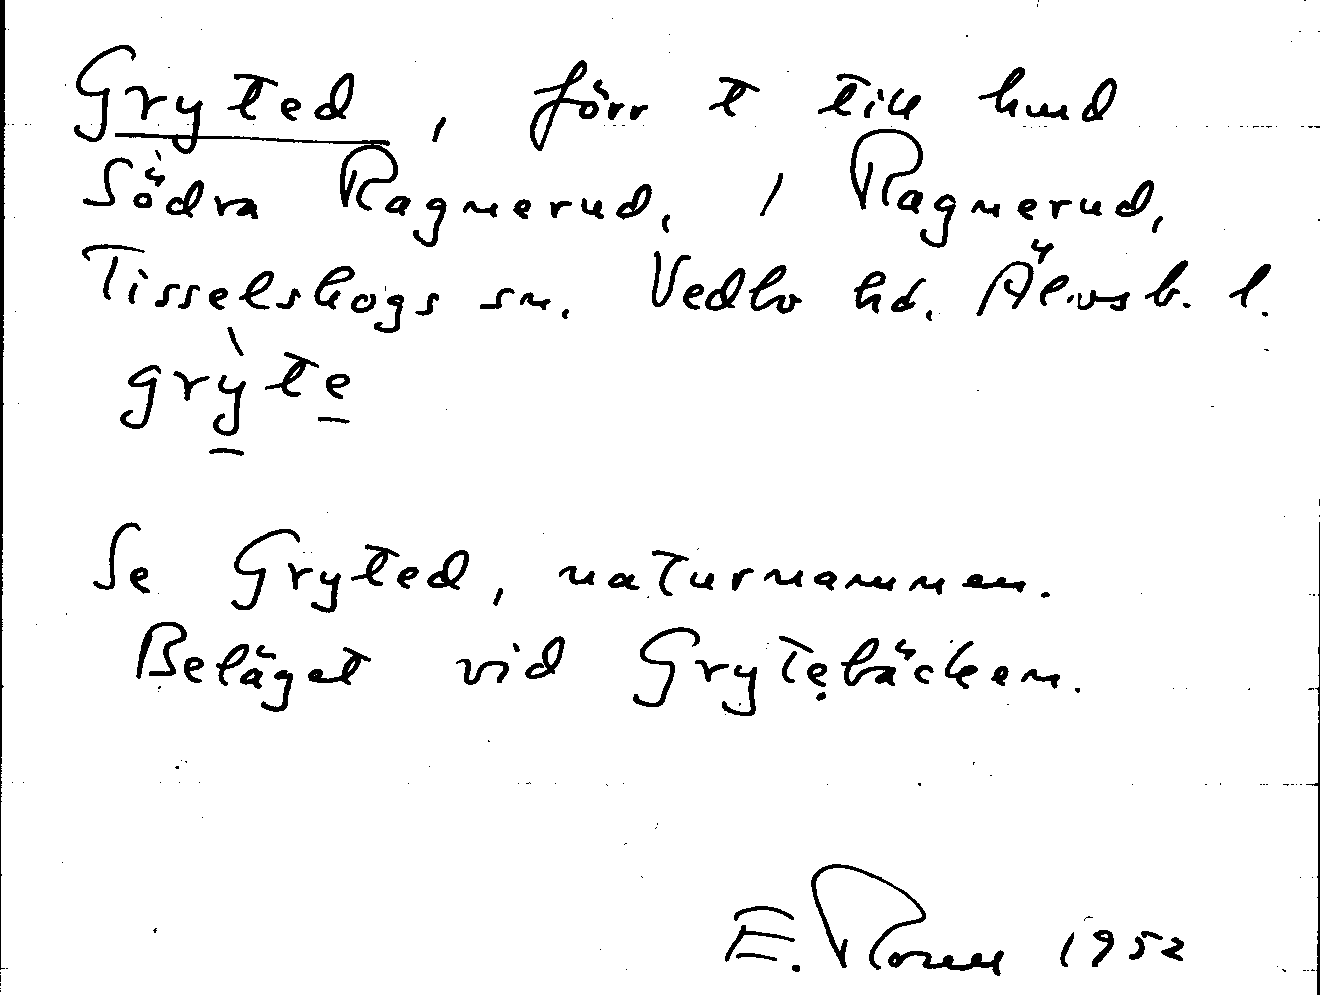 Gryted, förr t till hmd
Södra Ragnerud, / Ragnerud,
Tisselskogs sn. Vedbo hd. Älvsb. l.
grỳte
Se Gryted, naturnamnen.
Beläget vid Grytebäcken.
E. 1952